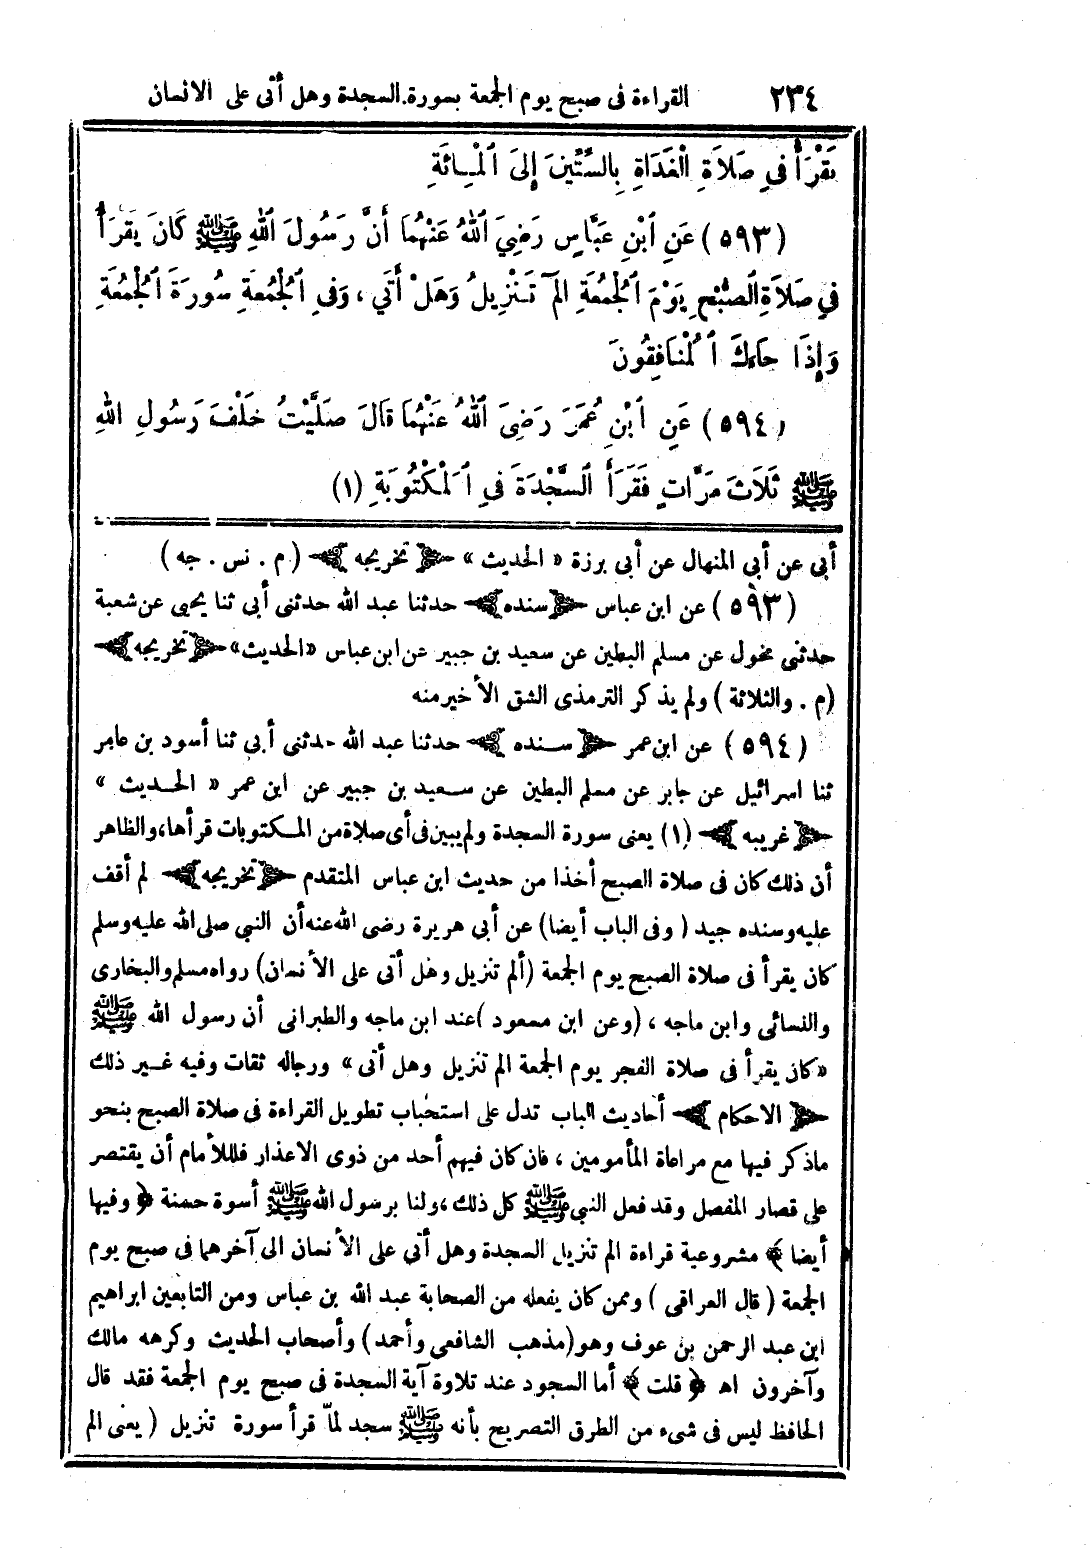 ٢٣٤ القراءة فى صبح يوم الجمعة بسورة السجدة وهل أتى على الانسان
يَقْرَأُ فِي صَلَاةِ الْغَدَاةِ بِالسِّتِّينَ إِلَى الْمِائَةِ
(٥٩٣) عَنِ ابْنِ عَبَّاسٍ رَضِيَ اللهُ عَنْهُمَا أَنَّ رَسُولَ اللهِ ﷺ كَانَ يَقْرَأُ
فِي صَلَاةِ الصُّبْحِ يَوْمَ الْجُمُعَةِ الم تَنْزِيلُ وَهَلْ أَتَى ، وَفِي الْجُمُعَةِ سُورَةَ الْجُمُعَةِ
وَإِذَا جَاءَكَ الْمُنَافِقُونَ
(٥٩٤) عَنِ ابْنِ عُمَرَ رَضِيَ اللهُ عَنْهُمَا قَالَ صَلَّيْتُ خَلْفَ رَسُولِ اللهِ
ﷺ ثَلَاثَ مَرَّاتٍ فَقَرَأَ السَّجْدَةَ فِي الْمَكْتُوبَةِ (١)
أبى عن أبى المنهال عن أبى برزة « الحديث » ﴿ تخريجه ﴾ (م . نس . جه )
(٥٩٣) عن ابن عباس ﴿ سنده ﴾ حدثنا عبد الله حدثنى أبى ثنا يحيى عن شعبة
حدثنى مخول عن مسلم البطين عن سعيد بن جبير عن ابن عباس «الحديث» ﴿ تخريجه ﴾
(م . والثلاثة ) ولم يذكر الترمذى الشق الأخير منه
(٥٩٤) عن ابن عمر ﴿ سنده ﴾ حدثنا عبد الله حدثنى أبى ثنا أسود بن عامر
ثنا اسرائيل عن جابر عن مسلم البطين عن سعيد بن جبير عن ابن عمر « الحديث »
﴿ غريبه ﴾ (١) يعنى سورة السجدة ولم يبين فى أى صلاة من المكتوبات قرأها، والظاهر
أن ذلك كان فى صلاة الصبح أخذا من حديث ابن عباس المتقدم ﴿ تخريجه ﴾ لم أقف
عليه وسنده جيد ( وفى الباب أيضا ) عن أبى هريرة رضى الله عنه أن النبى صلى الله عليه وسلم
كان يقرأ فى صلاة الصبح يوم الجمعة (ألم تنزيل وهل أتى على الأنسان) رواه مسلم والبخارى
والنسائى وابن ماجه ، (وعن ابن مسعود )عند ابن ماجه والطبرانى أن رسول الله ﷺ
«كان يقرأ فى صلاة الفجر يوم الجمعة الم تنزيل وهل أتى» ورجاله ثقات وفيه غير ذلك
﴿ الاحكام ﴾ أحاديث الباب تدل على استحباب تطويل القراءة فى صلاة الصبح بنحو
ماذكر فيها مع مراعاة المأمومين ، فان كان فيهم أحد من ذوى الاعذار فللأمام أن يقتصر
على قصار المفصل وقد فعل النبى ﷺ كل ذلك، ولنا برسول الله ﷺ أسوة حسنة ﴿ وفيها
أيضا ﴾ مشروعية قراءة الم تنزيل السجدة وهل أتى على الأنسان الى آخرهما فى صبح يوم
الجمعة ( قال العراقى ) وممن كان يفعله من الصحابة عبد الله بن عباس ومن التابعين ابراهيم
ابن عبد الرحمن بن عوف وهو (مذهب الشافعى وأحمد) وأصحاب الحديث وكرهه مالك
وآخرون اهـ ﴿ قلت ﴾ أما السجود عند تلاوة آية السجدة فى صبح يوم الجمعة فقد قال
الحافظ ليس فى شىء من الطرق التصريح بأنه ﷺ سجد لمّا قرأ سورة تنزيل ( يعنى الم